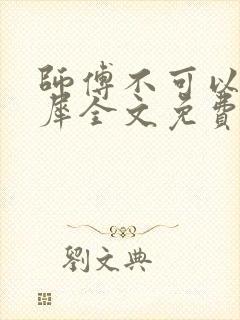 師傅不可以
犀全文免費
劉文典